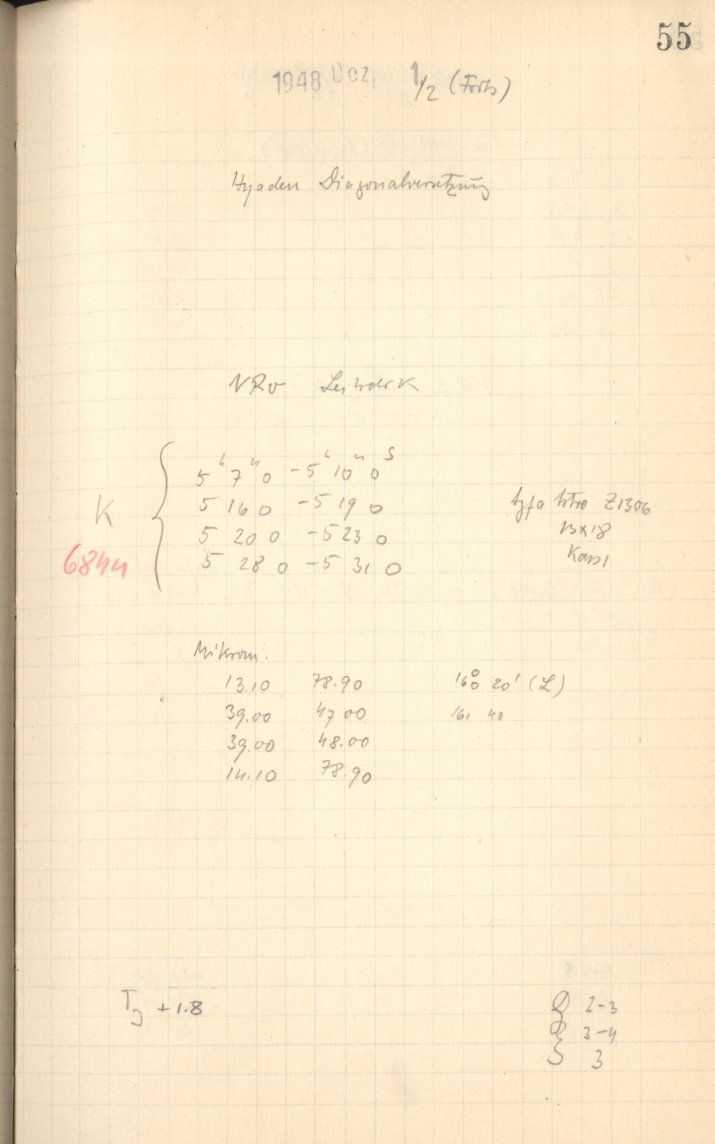 55
1948 Dez. 1/2 (Forts)
Hyaden Diagonalversetzung
K
6844
5ʰ 7ᵐ 0 -5ʰ 10ᵐ 0ˢ
5 16 0 -5 19 0
5 20 0 -5 23 0
5 28 0 -5 31 0
Agfa Astro Z1306
13x18
Kass1
Mikrom.
13.10 78.90 160° 20' (L)
39.00 47.00 161 40
39.00 48.00
14.10 78.90
T_J +1.8
2-3
3-4
S 3